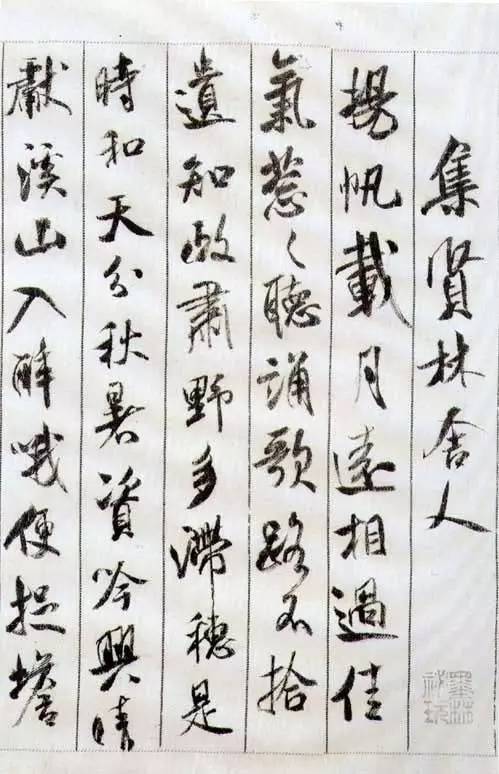 集賢林舍人
揚帆載月遠相過佳
氣葱々聽誦歌路不拾
遺知政肅野多滯穗是
時和天分秋暑資吟興晴
獻溪山入醉哦便捉蟾
墨林秘玩